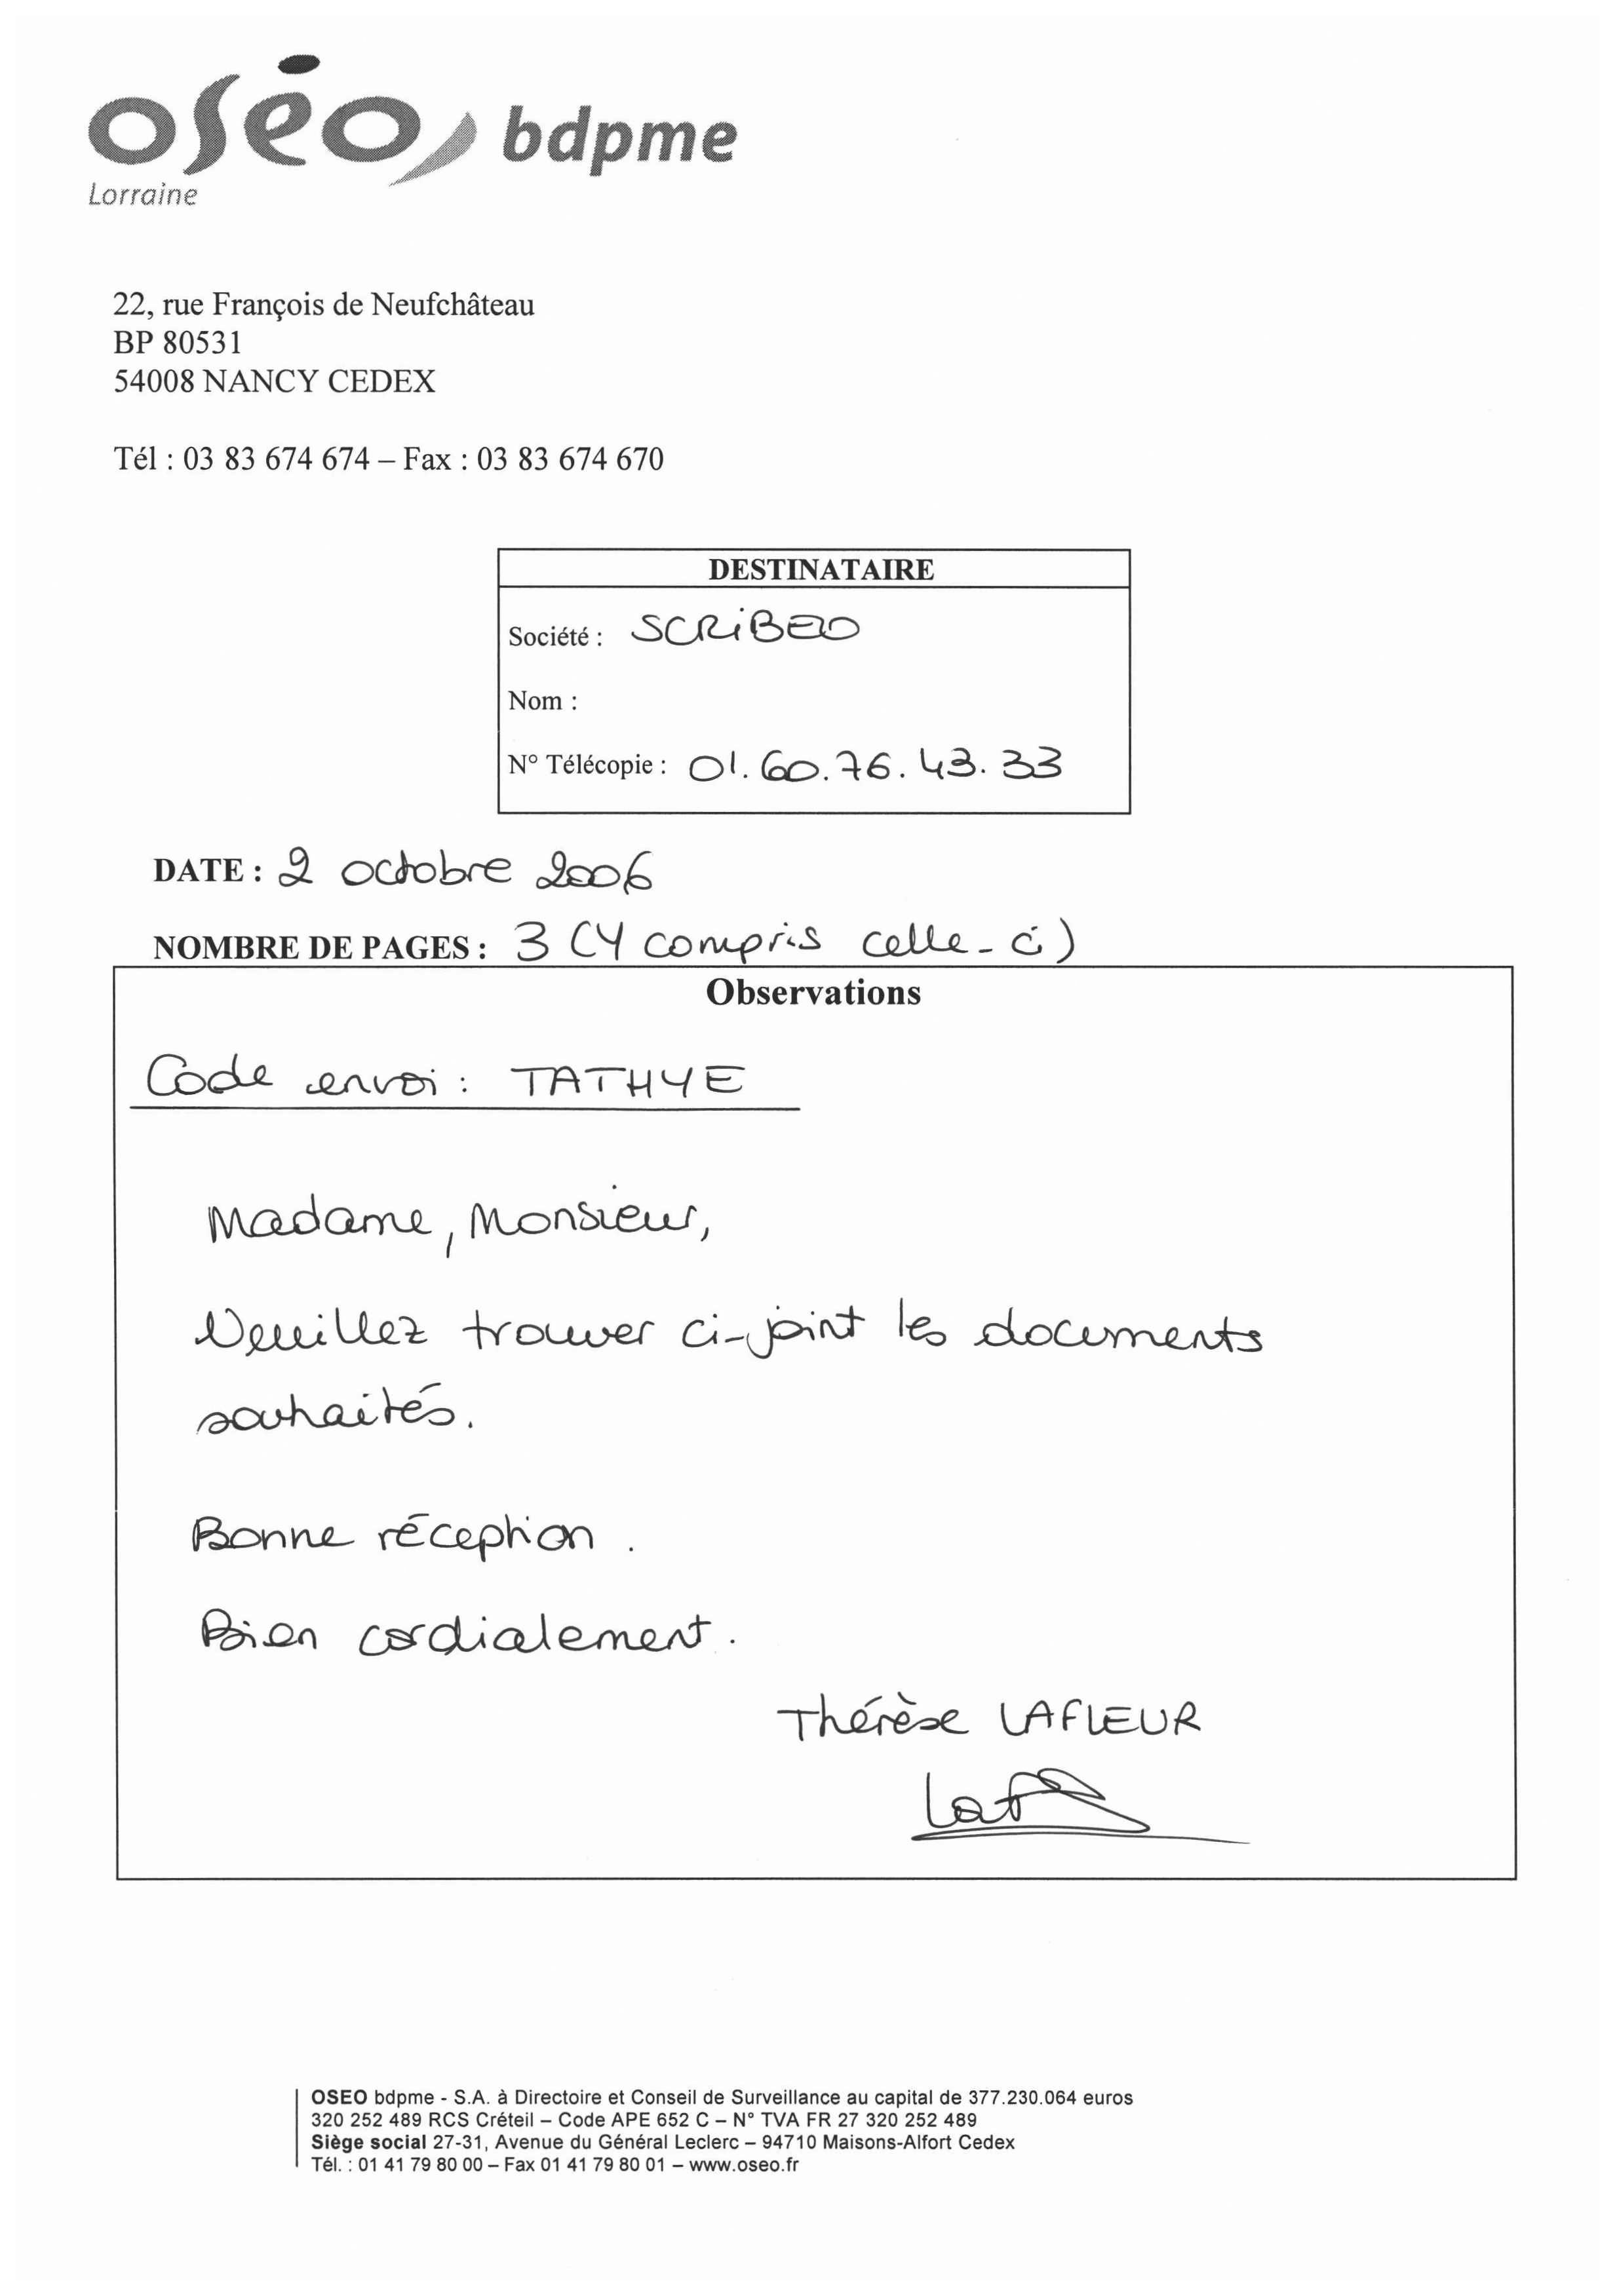 oséo bdpme
Lorraine
22, rue François de Neufchâteau
BP 80531
54008 NANCY CEDEX
Tél : 03 83 674 674 – Fax : 03 83 674 670
DESTINATAIRE
Société : SCRIBEO
Nom :
N° Télécopie : 01.60.76.43.33
DATE : 2 octobre 2006
NOMBRE DE PAGES : 3 (Y compris celle-ci)
Observations
Code envoi : TATHYE
Madame, Monsieur,
Veuillez trouver ci-joint les documents
souhaités.
Bonne réception.
Bien cordialement.
Thérèse LAFLEUR
OSEO bdpme - S.A. à Directoire et Conseil de Surveillance au capital de 377.230.064 euros
320 252 489 RCS Créteil – Code APE 652 C – N° TVA FR 27 320 252 489
Siège social 27-31, Avenue du Général Leclerc – 94710 Maisons-Alfort Cedex
Tél. : 01 41 79 80 00 – Fax 01 41 79 80 01 – www.oseo.fr